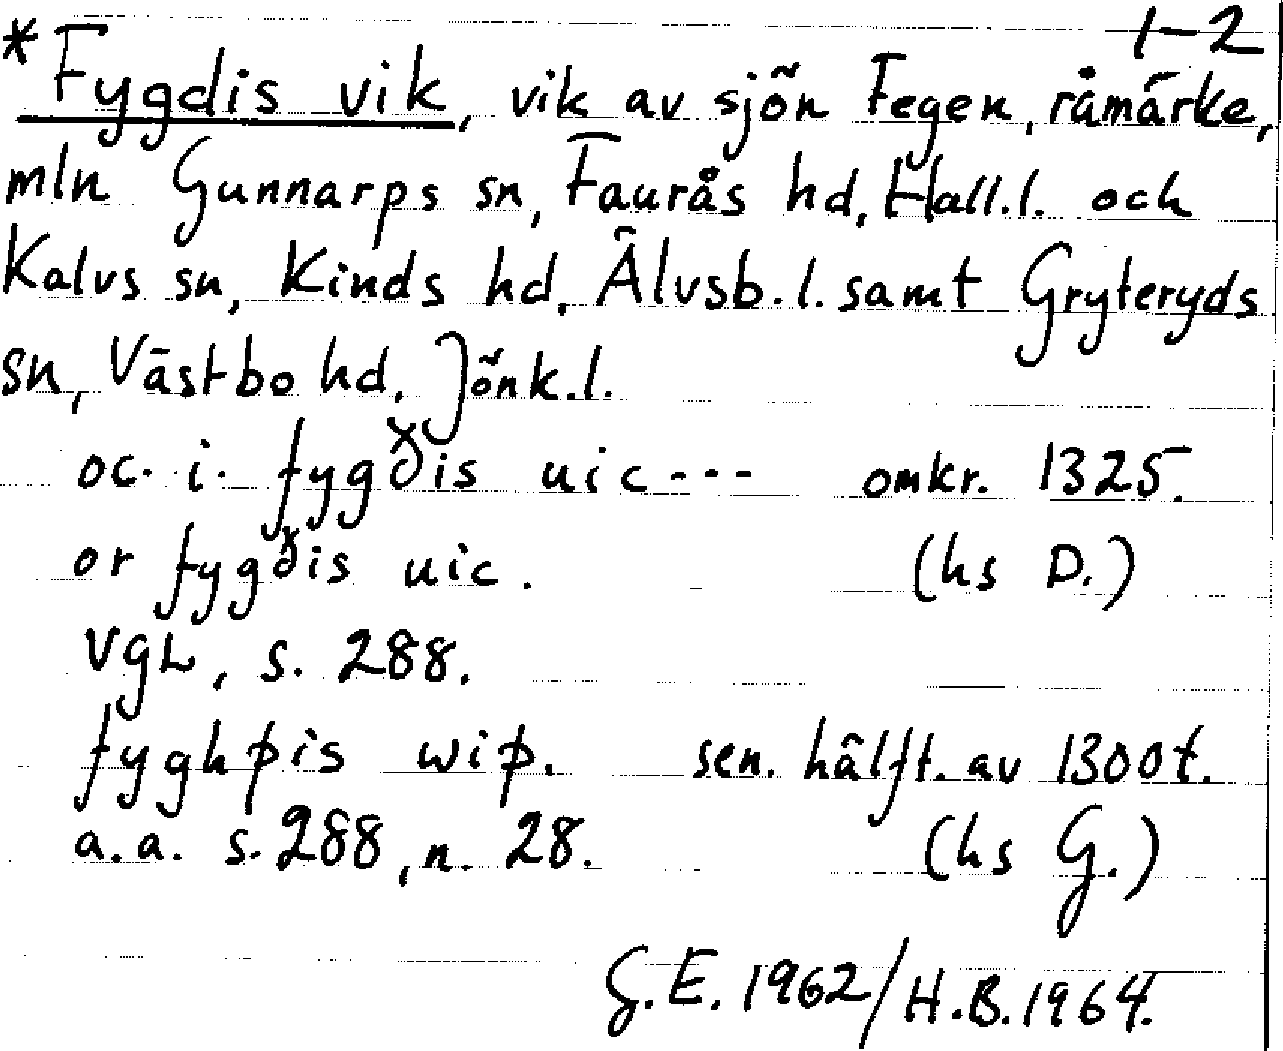 1–2
*Fygdis vik, vik av sjön Fegen, råmärke,
mln Gunnarps sn, Faurås hd, Hall.l. och
Kalvs sn, Kinds hd, Älvsb.l. samt Gryteryds
sn, Västbo hd, Jönk.l.
oc. i. fygðis uic--- omkr. 1325.
or fygðis uic. (hs D.)
VgL, s. 288.
fyghþis wiþ. sen. hälft. av 1300t.
a.a. s. 288, n. 28. (hs G.)
G.E. 1962/H.B. 1964.